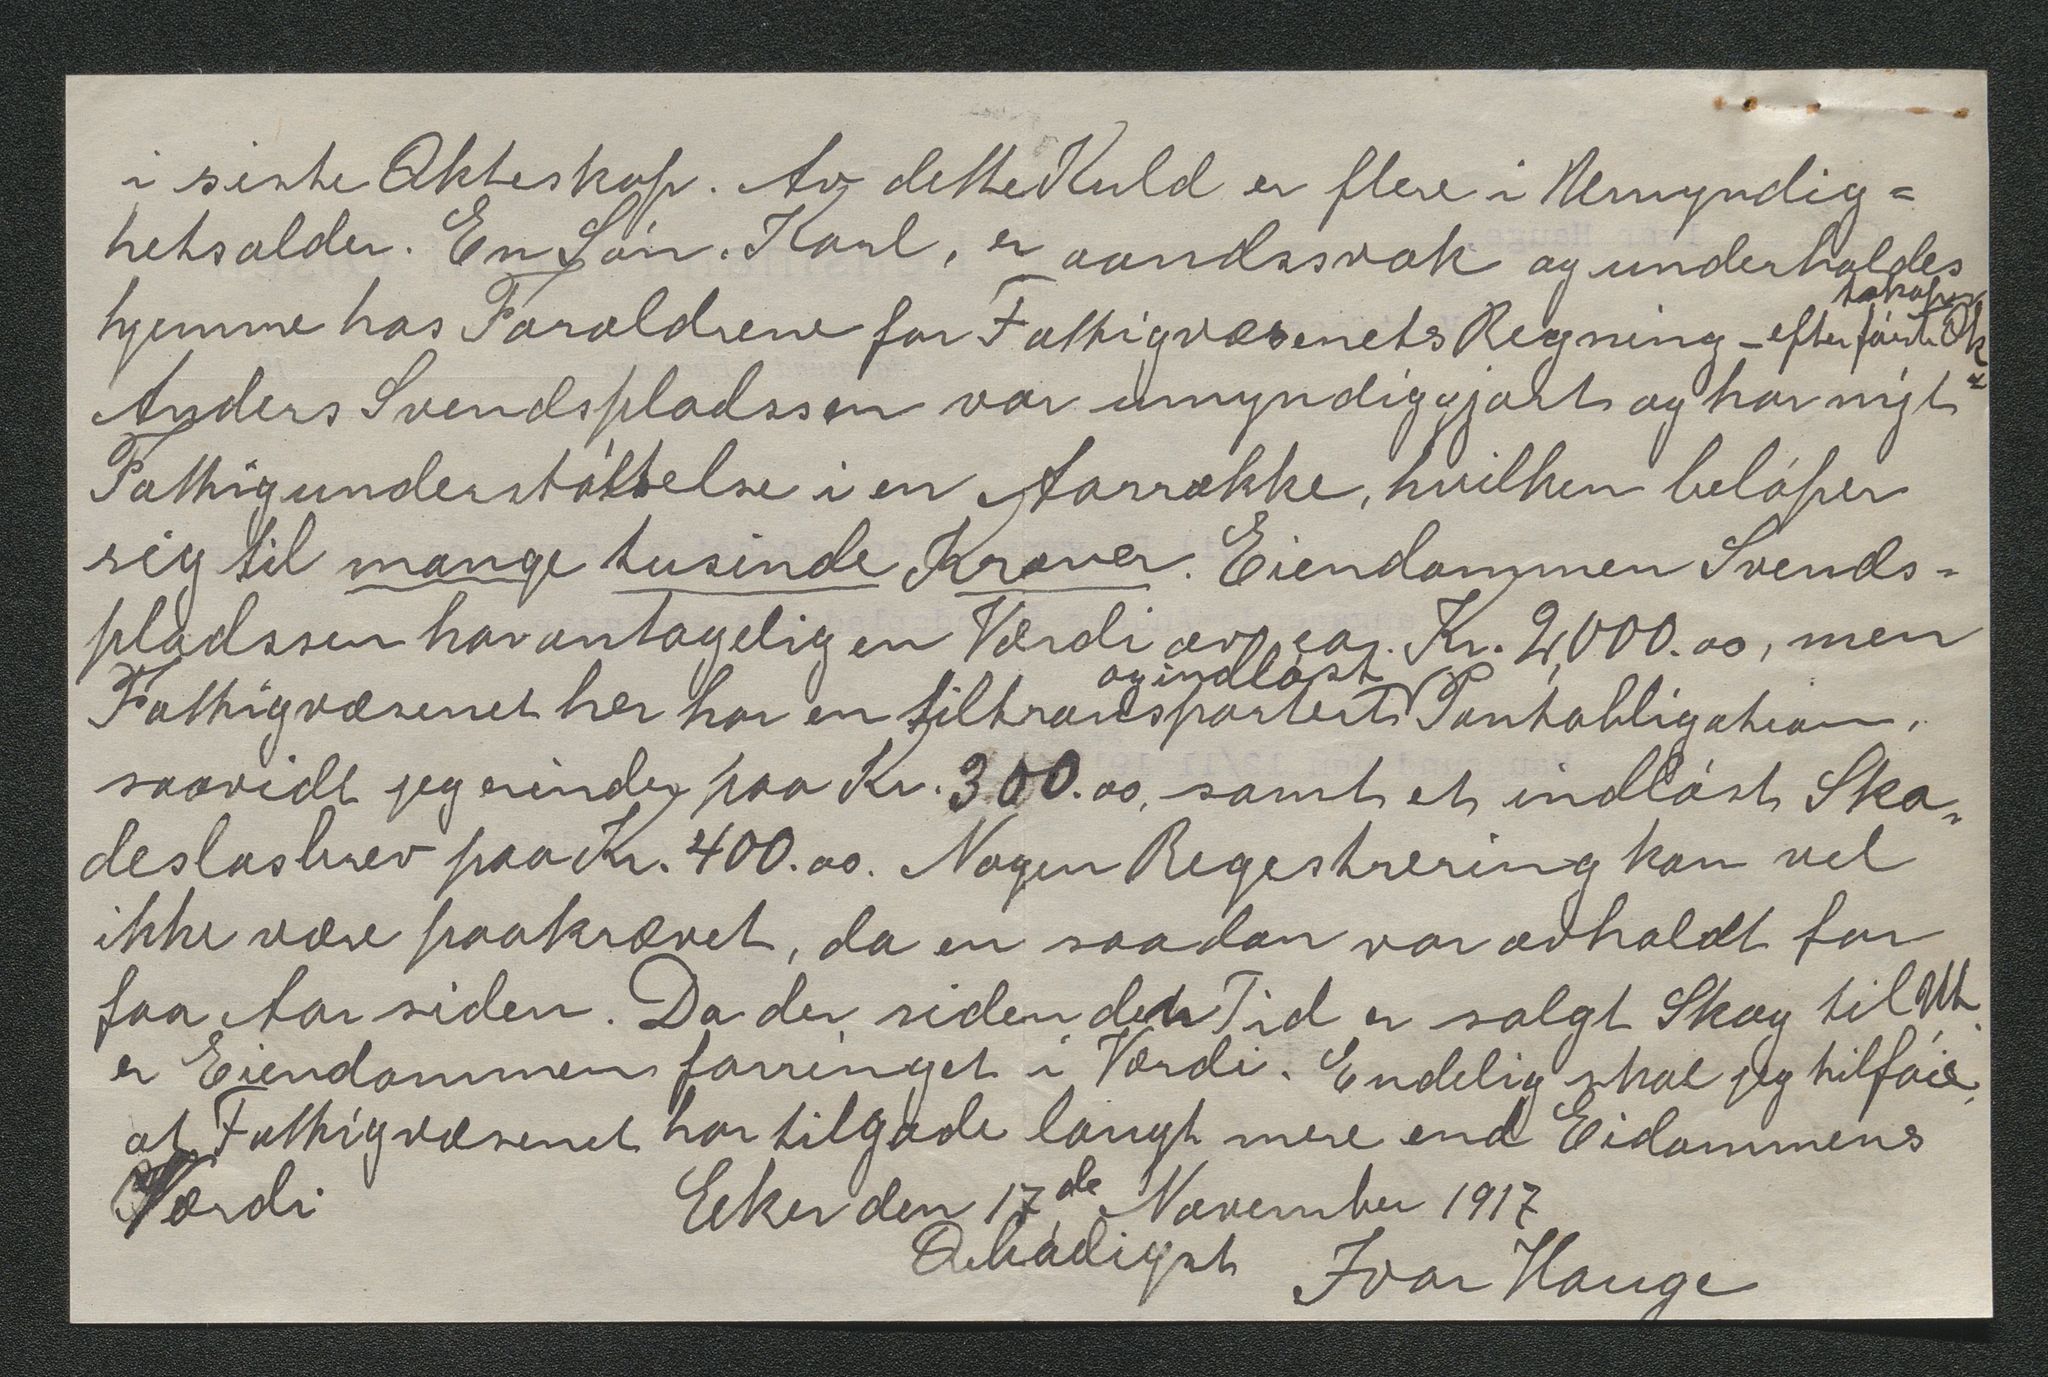 i siste Ækteskap. Av dette Kuld er flere i Uemyndig=
hetsalder. En Søn, Karl, er aandssvak og underholdes
hjemme hos Forældrene for Fattigvæsenets Regning – efter første Æk
teskaper
Anders Svendspladssen var umyndiggjort og har nyt
Fattigunderstøttelse i en Aarrække, hvilken beløper
sig til mange tusinde Kroner. Eiendommen Svends-
pladssen har antagelig en Værdi av ca. Kr. 2,000.00, men
og indløst
Fattigvæsenet her har en tiltransportert Pantobligation,
saavidt jeg erindrer paa Kr. 300.00, samt et indløst Ska-
desløsbrev paa Kr. 400.00. Nogen Regestrering kan vel
ikke være paakrævet, da en saadan var avholdt for
faa Aar siden. Da der siden den Tid er solgt Skog til Ut.
er Eiendommen forringet i Værdi. Endelig skal jeg tilføie,
at Fattigvæsenet har tilgode langt mere end Eidommens
Værdi
Eker den 17de November 1917
Ærbødigst Ivar Hauge